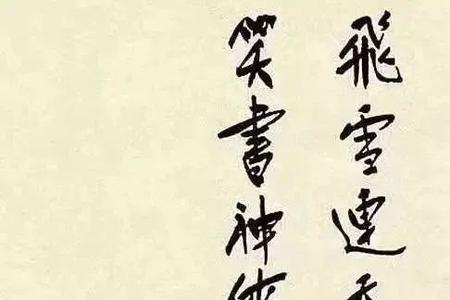 飛雪連
笑書神俠